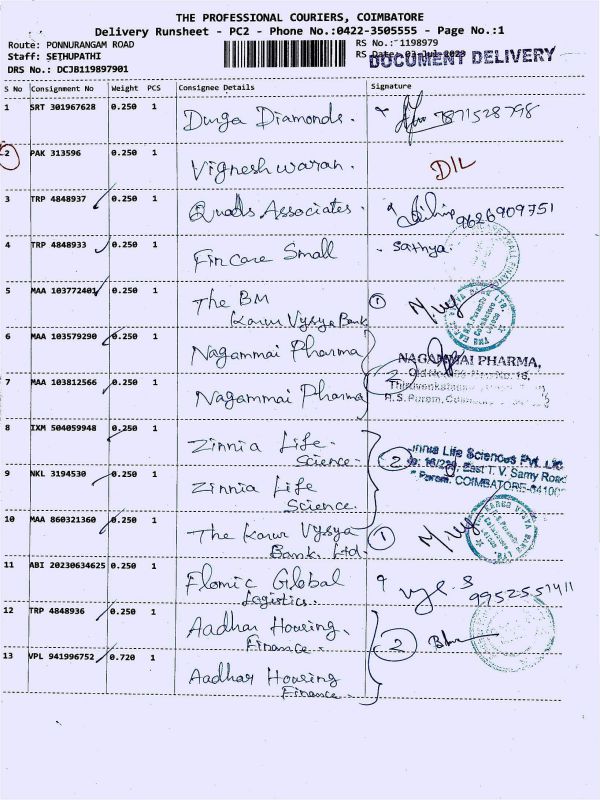 THE PROFESSIONAL COURIERS, COIMBATORE
Delivery Runsheet - PC2 - Phone No.:0422-3505555 - Page No.:1
Route: PONNURANGAM ROAD RS No.: 1198979
Staff: SETHUPATHI RS Date: 03-Jul-2023 DOCUMENT DELIVERY
DRS No.: DCJB119897901
S No Consignment No Weight PCS Consignee Details Signature
1 SRT 301967628 0.250 1 Durga Diamonds. 7871528798
2 PAK 313596 0.250 1 Vigneshwaran. D/L
3 TRP 4848937 0.250 1 Quads Associates. 9626909751
4 TRP 4848933 0.250 1 Fincare Small Sathya.
5 MAA 103772401 0.250 1 The BM 1
Karur Vysya Bank
6 MAA 103579290 0.250 1 Nagammai Pharma NAGAMMAI PHARMA,
2
7 MAA 103812566 0.250 1 Nagammai Pharma
R.S. Puram,
8 IXM 504059948 0.250 1 Zinnia Life Science. 2 Zinnia Life Sciences Pvt. Ltd
East T. V. Samy Road
9 NKL 3194530 0.250 1 Zinnia Life Science. Puram, COIMBATORE-64100
10 MAA 860321360 0.250 1 The Karur Vysya 1
Bank Ltd.
11 ABI 20230634625 0.250 1 Flomic Global 9952551411
Logistics.
12 TRP 4848936 0.250 1 Aadhar Housing 2
Finance.
13 VPL 941996752 0.720 1 Aadhar Housing
Finance.